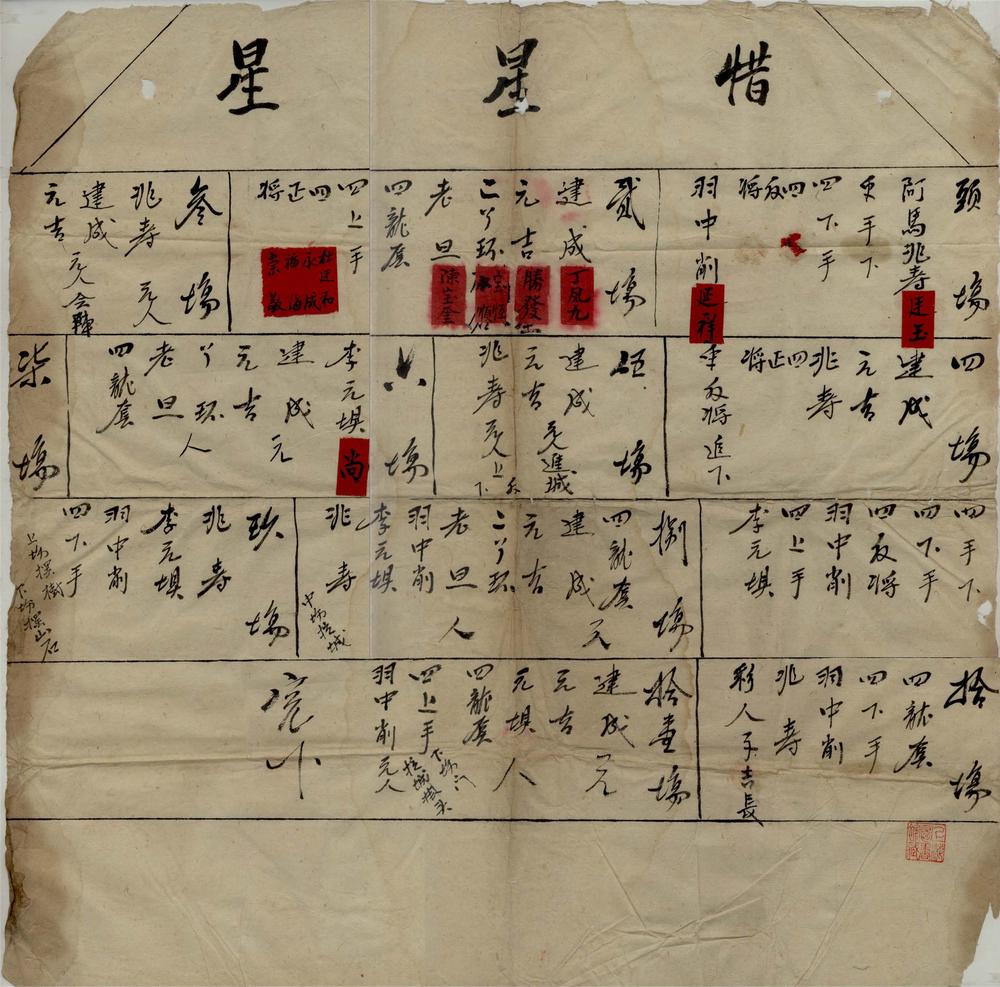 惜星星
頭場
阿馬兆壽 廷玉
手下
四下手
四反将
羽中削 廷祥
貳場
建成 丁鳳九
元吉 勝發
二丫环
老旦 陳宝奎
四龍套
四上手
四正将
杜廷和
永成
福海
崇義
叁場
兆壽 元人
建成
元吉 元人会陣
四場
建成
元吉
兆壽
四正将
反将追下
伍場
建成 元進城
元吉
兆壽 元人上下
六場
李元埧 尚
建成 元
元吉
丫环
老旦 人
四龍套
柒場
四手下
四下手
四反将
羽中削
四上手
李元埧
捌場
四龍套
建成 元
元吉
二丫环
老旦 人
羽中削
李元埧
兆壽
玖場
兆壽
李元埧
羽中削
四下手
拾場
四龍套
四下手
羽中削
兆壽
彩人子 吉長
拾壹場
建成 元
元吉
元埧 人
四龍套
四上手
羽中削 元人
完